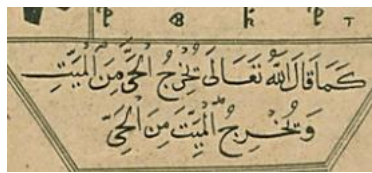 كَمَا قَالَ اللّٰهُ تَعَالَى تُخْرِجُ الْحَيَّ مِنَ الْمَيِّتِ
وَتُخْرِجُ الْمَيِّتَ مِنَ الْحَيِّ